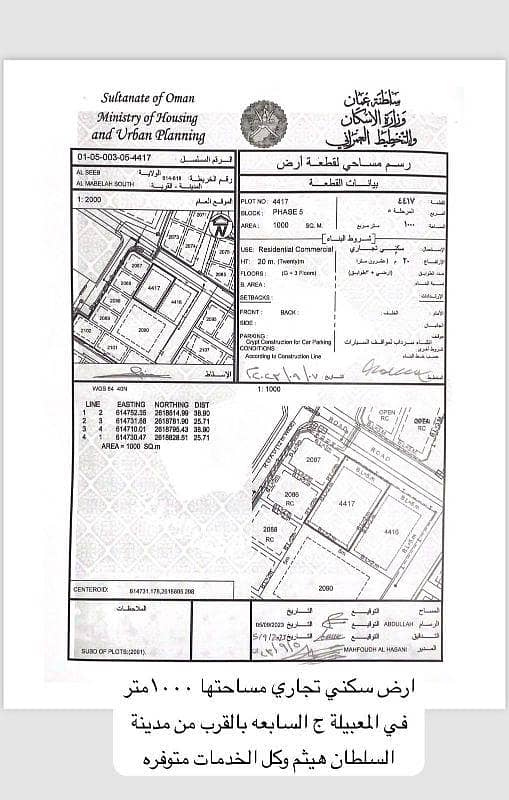 Sultanate of Oman
Ministry of Housing
and Urban Planning
سلطنة عمان
وزارة الإسكان
والتخطيط العمراني
01-05-003-05-4417
الرقم المسلسل
رسم مساحي لقطعة أرض
AL SEEB
الولاية
رقم الخريطة
بيانات القطعة
AL MABELAH SOUTH
المدينة - القرية
1: 2000
الموقع العام
PLOT NO : 4417
٤٤١٧
BLOCK : PHASE 5
المرحلة ٥
AREA : 1000 SQ. M
متر مربع ١٠٠٠
شروط البناء
USE: Residential Commercial
سكني تجاري
HT: 20 m. (Twenty)m
FLOORS: (G + 3 Floors)
B. AREA :
SETBACKS:
FRONT : BACK :
SIDE :
PARKING:
Crypt Construction for Car Parking
CONDITIONS
According to Construction Line
N
2071
2087
4417
4416
2090
2102
2101
WGS 84 40N
1: 1000
LINE EASTING NORTHING DIST
1 2 614752.35 2618814.99 38.90
2 3 614731.88 2618781.90 25.71
3 4 614710.01 2618795.43 38.90
4 1 614730.47 2618828.51 25.71
AREA = 1000 SQ.m
OPEN
RC
ROAD
ROAD
2087
2086
RC
2088
RC
4417
4416
2090
CENTEROID: 614731.178,2618805.208
الملاحظات
SUBD OF PLOTS:(2091).
المساح
التوقيع
التاريخ
الرسام
ABDULLAH
التوقيع
التاريخ
05/09/2023
التدقيق
التوقيع
التاريخ
المدير
MAHFOUDH AL HASANI
ارض سكني تجاري مساحتها ١٠٠٠متر
في المعبيلة ج السابعه بالقرب من مدينة
السلطان هيثم وكل الخدمات متوفره